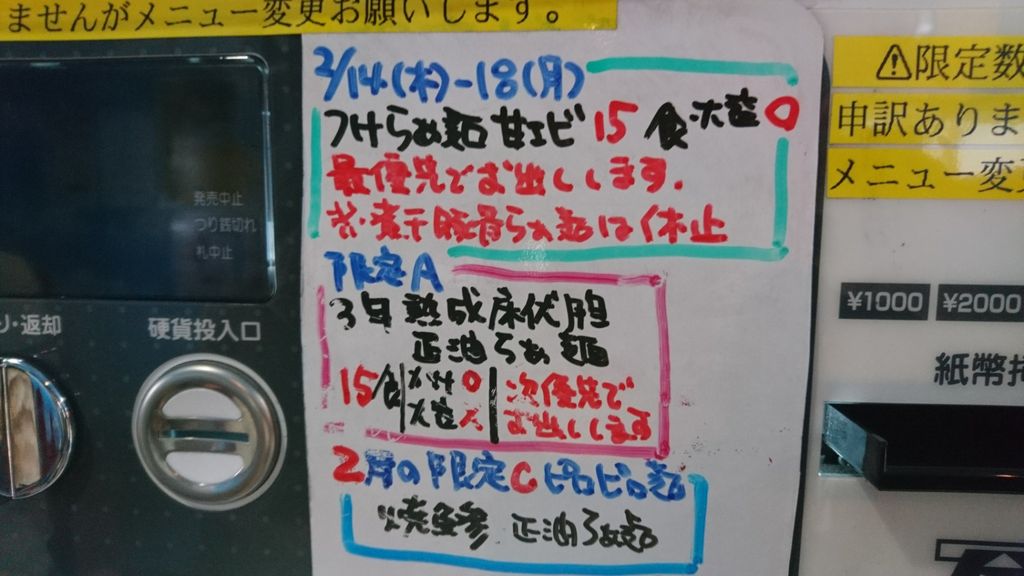 ませんがメニュー変更お願いします。
2/14(木)-18(月)
つけらぁ麺 甘エビ 15食 大盛〇
最優先でお出しします.
※煮干豚骨らぁ麺は休止
限定A
3年熟成
正油らぁ麺
15食 〇
大盛
次優先で
お出しします
2月の限定C ピロピロ麺
正油らぁ麺
発売中止
つり銭切れ
札中止
・返却
硬貨投入口
⚠限定数
申訳ありま
メニュー変
¥1000 ¥2000
紙幣